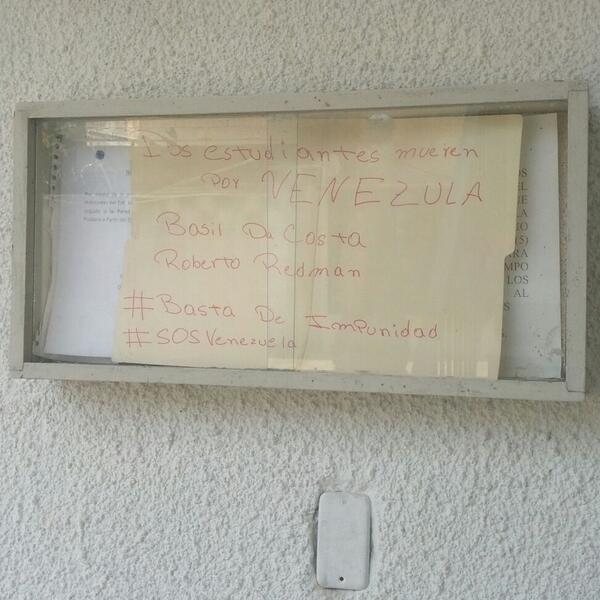 Los estudiantes mueren
por VENEZULA
Basil Da Costa
Roberto Redman
#Basta De Impunidad
#SOSVenezuela
OS
EL
LA
IO
(S)
ARA
MPO
LOS
AL
S